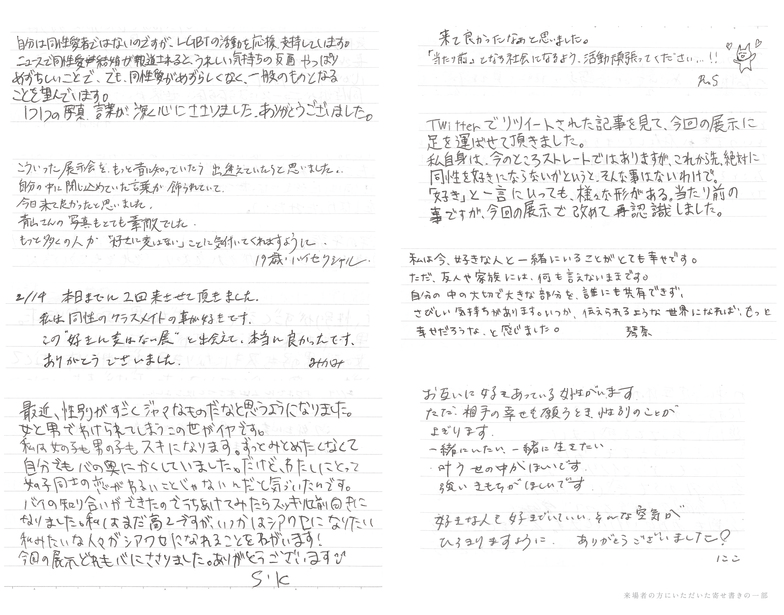 自分は同性愛者ではないのですが、LGBTの活動を応援、支持しています。
ニュースで同性愛 結婚が報道されると、うれしい気持ちの反面 やっぱり
めずらしいことで、でも、同性愛がめずらしくなく、一般のものとなる
ことを望んでいます。
1つ1つの写真、言葉が、深く心にささりました。ありがとうございました。
こういった展示会を、もっと昔に知っていたら 出逢えていたらと思いました。
自分の中に閉じ込めていた言葉が飾られていて、
今日来て良かったと思いました。
青山さんの写真もとても素敵でした。
もっと多くの人が"好きに変はない"ことに気付いてくれますように。
19歳・バイセクシャル
2/19 本日までに2回来させて頂きました。
私は同性のクラスメイトの事が好きです。
この"好きに変はない展"と出会えて、本当に良かったです。
ありがとうございました。
最近、性別がすごくジャマなものだなと思うようになりました。
女と男でわけられてしまうこの世がイヤです。
私は女の子も男の子もスキになります。ずっとみとめたくなくて
自分でも心の奥にかくしていました。だけど、わたしにとって
女の子同士の恋がわるいことじゃないんだと気づいたんです。
バイの知り合いができたのでうちあけてみたらスッキリ前向きに
なりました。私はまだ高2ですが、いつかはシアワセになりたい
私みたいな人々がシアワセになれることをねがいます!
今回の展示どれも心にささりました。ありがとうございます
S・K
来て良かったなぁと思いました。
「当たり前」になる社会になるよう、活動頑張ってください...!!
R.S
Twitterでリツイートされた記事を見て、今回の展示に
足を運ばせて頂きました。
私自身は、今のところストレートではありますが、これから先、絶対に
同性を好きにならないかというと、そんな事はないわけで。
「好き」と一言にいっても、様々な形がある。当たり前の
事ですが、今回の展示で改めて再認識しました。
私は今、好きな人と一緒にいることがとても幸せです。
ただ、友人や家族には、何も言えないままです。
自分の中の大切で大きな部分を、誰にも共有できず、
さびしい気持ちがあります。いつか、伝えられるような世界になれば、もっと
幸せだろうな、と感じました。
お互いに好きあっている女性がいます
ただ 相手の幸せを願うとき、性別のことが
よぎります。
一緒にいたい、一緒に生きたい
叶う世の中がほしいです
強いきもちがほしいです
好きな人を好きでいていい、そんな空気が
ひろまりますように。 ありがとうございました?
にこ
来場者の方にいただいた寄せ書きの一部